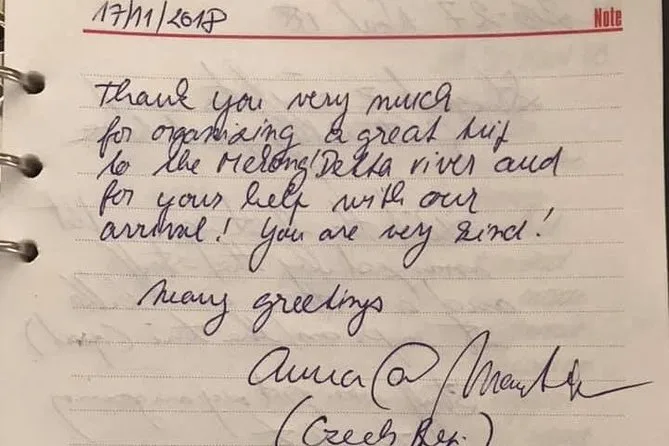 17/11/2018 Note
Thank you very much
for organizing a great trip
to the Mekong Delta river and
for your help with our
arrival! You are very kind!
Many greetings
Anna @
(Czech Rep.)